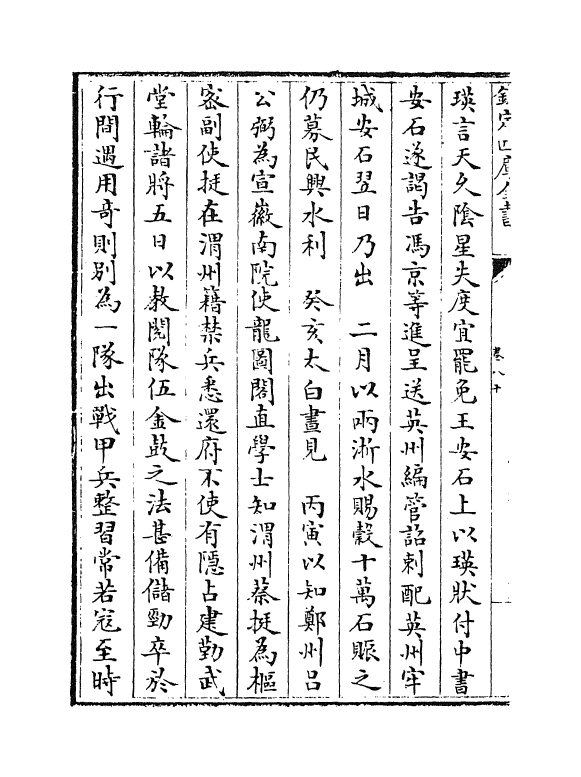 欽定四庫全書
卷八十
瑛言天久陰星失度宜罷免王安石上以瑛狀付中書
安石遂謁告馮京等進呈送英州編管詔刺配英州牢
城安石翌日乃出　二月以兩浙水賜穀十萬石賑之
仍募民興水利　癸亥太白晝見　丙寅以知鄭州呂
公弼為宣徽南院使龍圖閣直學士知渭州蔡挺為樞
密副使挺在渭州籍禁兵悉還府不使有隱占建勤武
堂輪諸將五日以教閱隊伍金鼓之法甚備儲勁卒於
行間遇用奇則別為一隊出戰甲兵整習常若寇至時